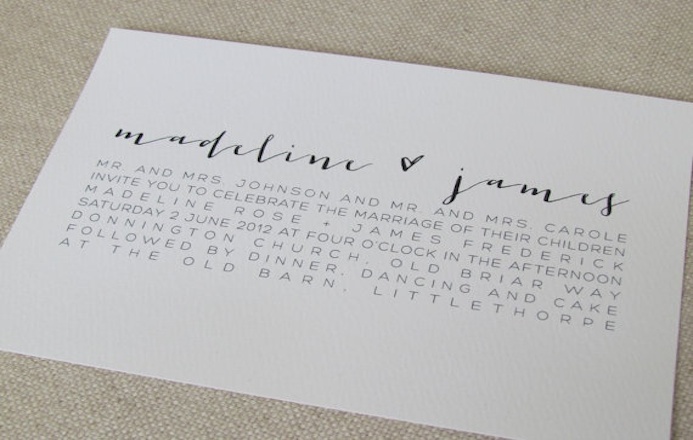 madeline ♥ james
MR AND MRS. JOHNSON AND MR. AND MRS. CAROLE
INVITE YOU TO CELEBRATE THE MARRIAGE OF THEIR CHILDREN
MADELINE ROSE + JAMES FREDERICK
SATURDAY 2 JUNE 2012 AT FOUR O'CLOCK IN THE AFTERNOON
DONNINGTON CHURCH, OLD BRIAR WAY
FOLLOWED BY DINNER, DANCING AND CAKE
AT THE OLD BARN, LITTLETHORPE